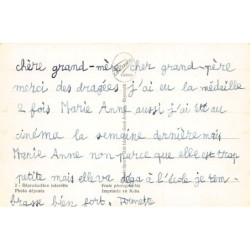 chère grand-mère cher grand-père
merci des dragées j'ai eu la médaille
2 fois Marie Anne aussi j'ai été au
cinéma la semaine dernière mais
Marie Anne non parce que elle est trap
petite mais elle va déjà à l'école je t'em-
2 - Reproduction interdite
Photo déposée
Photo photographie
Imprimée en
brasse bien fort.